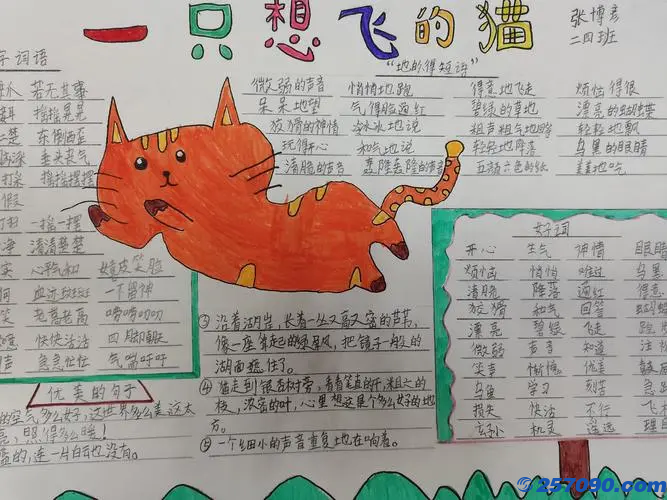 一只想飞的猫
张博彦
二四班
字词语
"地的得短语"
若无其事
摇摇晃晃
东倒西歪
垂头丧气
摇摇摆摆
一摇一摆
清清楚楚
心平气和 嬉皮笑脸
血迹斑斑 一不留神
老高老高 唠唠叨叨
快快活活 四脚朝天
急急忙忙 气喘吁吁
微弱的声音 悄悄地跑 得意地飞走 烦恼得很
呆呆地望 气得脸通红 碧绿的草地 漂亮的蝴蝶
狡猾的神情 冷冰冰地说 粗声粗气地 轻轻地飘
玩得开心 和气地说 轻轻地降落 乌黑的眼睛
清脆的声音 轰隆轰隆的声音 五颜六色的纸 美美地吃
优美的句子
的空气多么好,这世界多么美
亮,照得多么暖!
蓝的,连一片白云也没有。
③沿着湖岸,长着一丛又高又密的芦苇,
像一座筑起的绿屏风,把镜子一般的
湖面遮住了。
④猫走到银杏树旁,看着笔直的干,粗大的
枝,浓密的叶,心里想这是个多么好的地
方。
⑤一个细小的声音重复地在响着。
好词
开心 生气 神情 眼睛
烦恼 悄悄 难过 乌黑
清脆 降落 通红 得意
狡猾 和气 回答 蝴蝶
漂亮 碧绿 飞走
微弱 声音 知道
笑声 惭愧 优美
乌鱼 学习 刻苦
损失 快活 不行
玄孙 机灵 遥远
257090.com